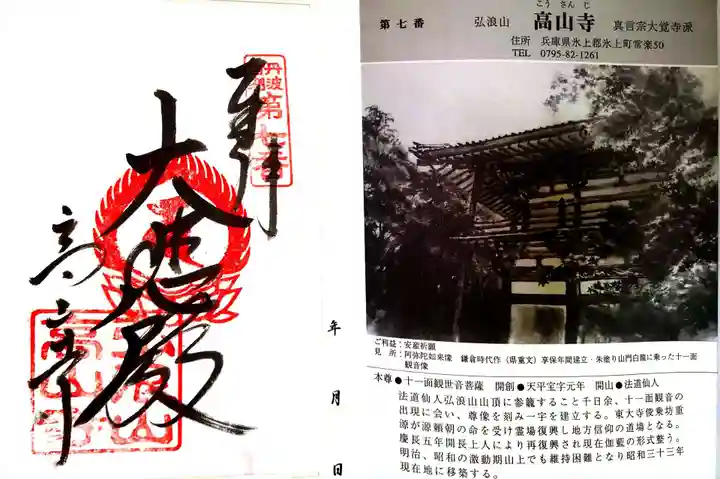 奉拝
丹波
第七番
大悲殿
高山寺
年
月
日
第七番
弘浪山
こうさんじ
高山寺
真言宗大覚寺派
住所 兵庫県氷上郡氷上町常楽50
TEL 0795-82-1261
ご利益:安産祈願
見 所:阿弥陀如来像 鎌倉時代作(県重文)享保年間建立・朱塗り山門白龍に乗った十一面
観音像
本尊●十一面観世音菩薩 開創●天平宝字元年 開山●法道仙人
法道仙人弘浪山山頂に参籠すること千日余、十一面観音の
出現に会い、尊像を刻み一宇を建立する。東大寺俊乗坊重
源が源頼朝の命を受け霊場復興し地方信仰の道場となる。
慶長五年開長上人により再復興され現在伽藍の形式整う。
明治、昭和の激動期山上でも維持困難となり昭和三十三年
現在地に移築する。